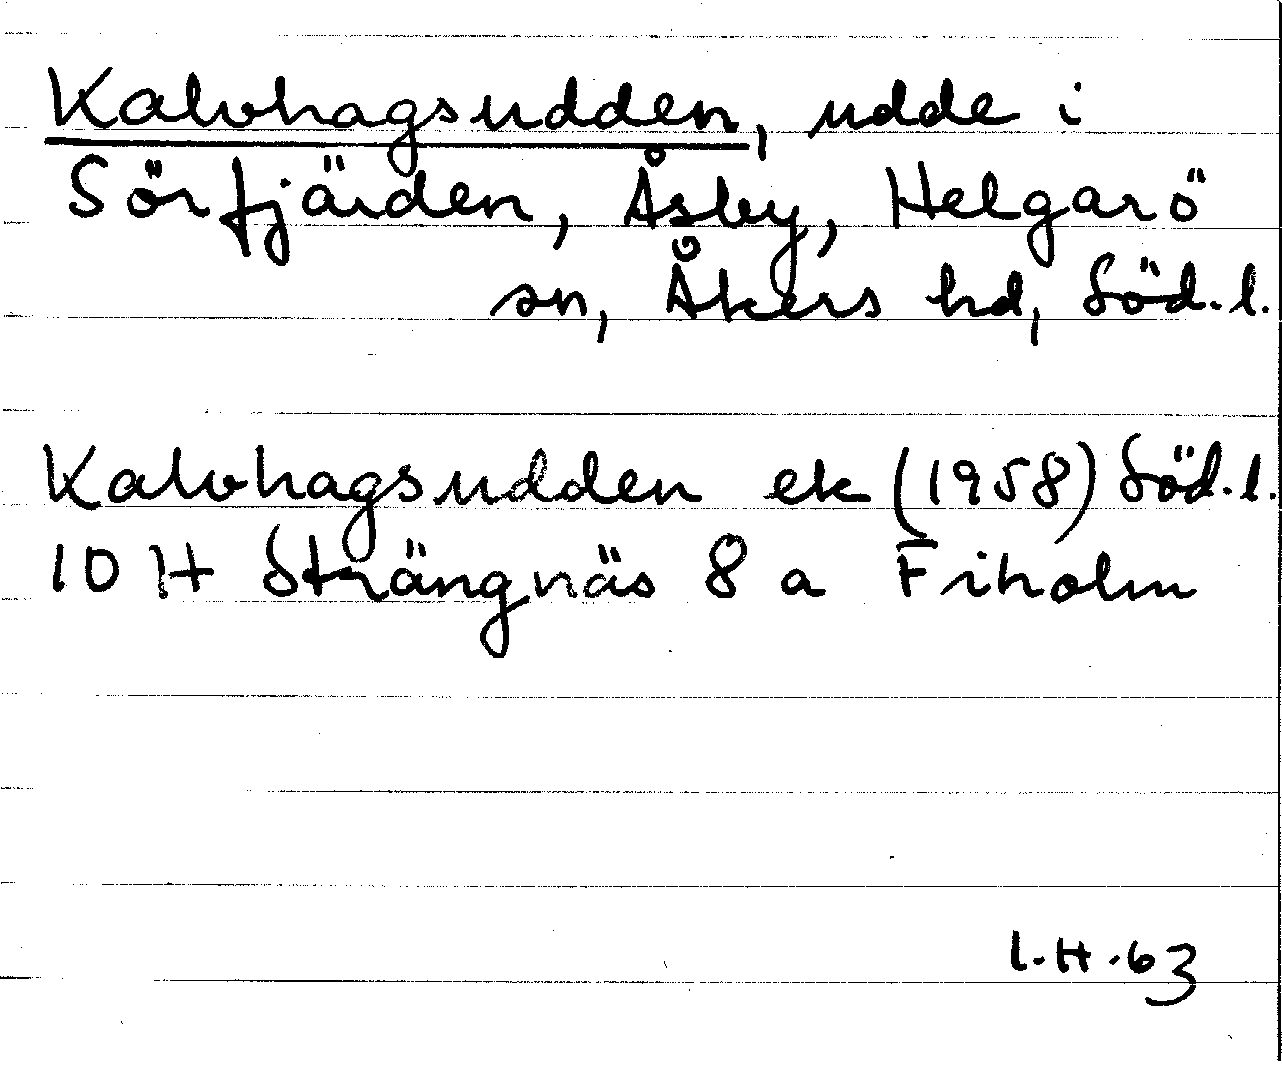 Kalvhagsudden, udde i
Sörfjärden, Åsby, Helgarö
sn, Åkers hd, Söd.l.
Kalvhagsudden ek (1958) Söd.l.
10 H Strängnäs 8 a Fiholm
I.H.63